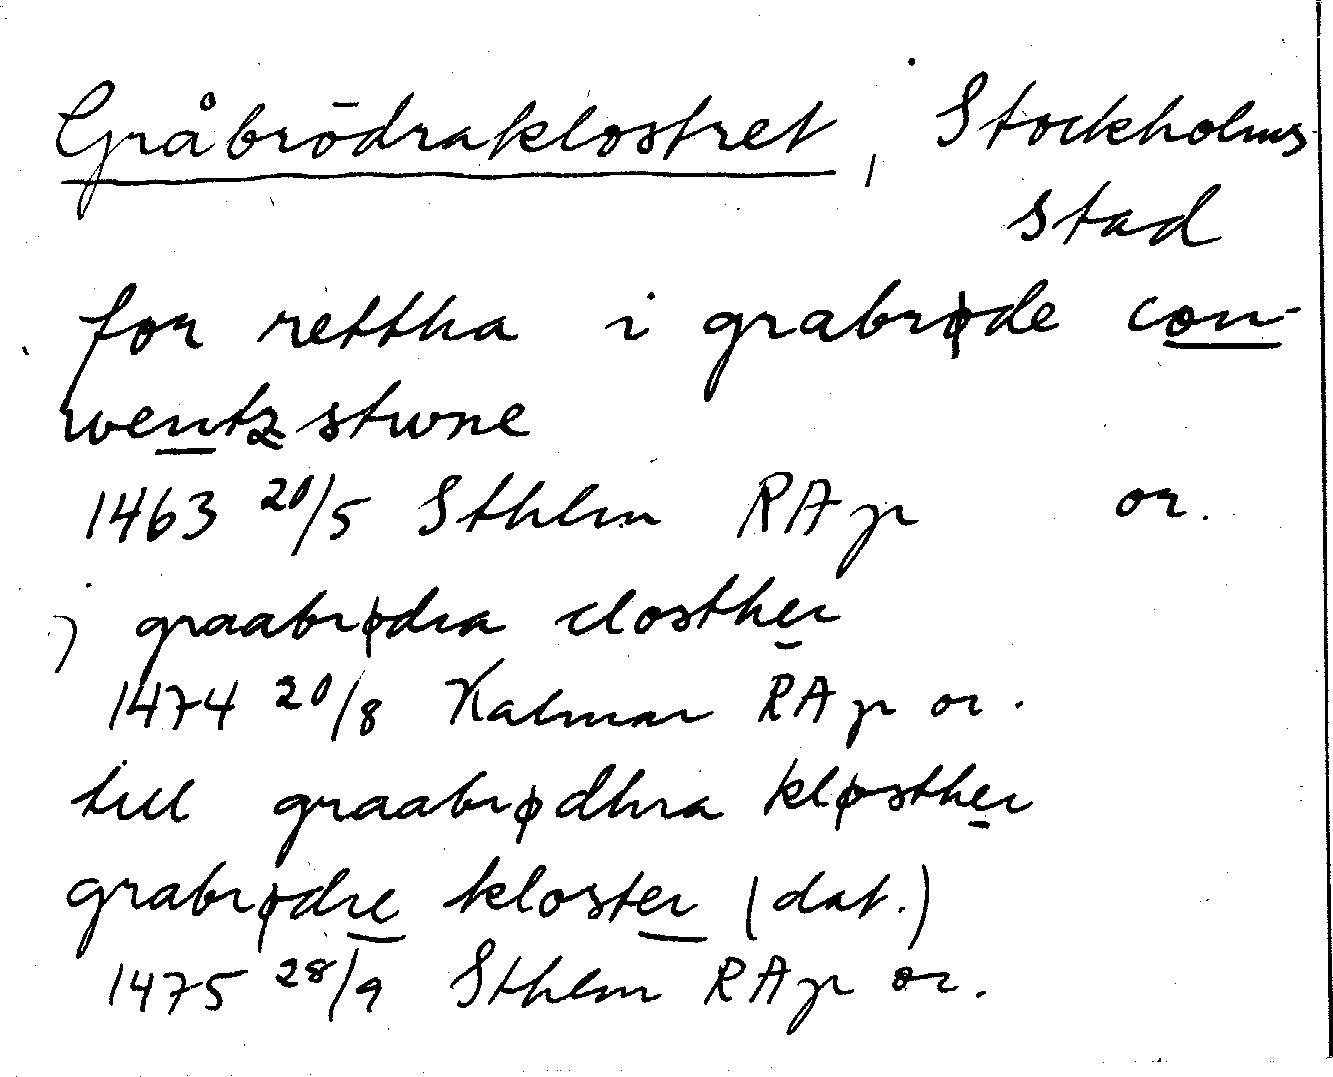 Gråbrödraklostret, Stockholms
stad
for rettha i grabrøde con-
wentz stwne
1463 20/5 Sthlm RAp or.
j graabrødra closther
1474 20/8 Kalmar RAp or.
till graabrødhra kløsther
grabrødre kloster (dat.)
1475 28/9 Sthlm RAp or.